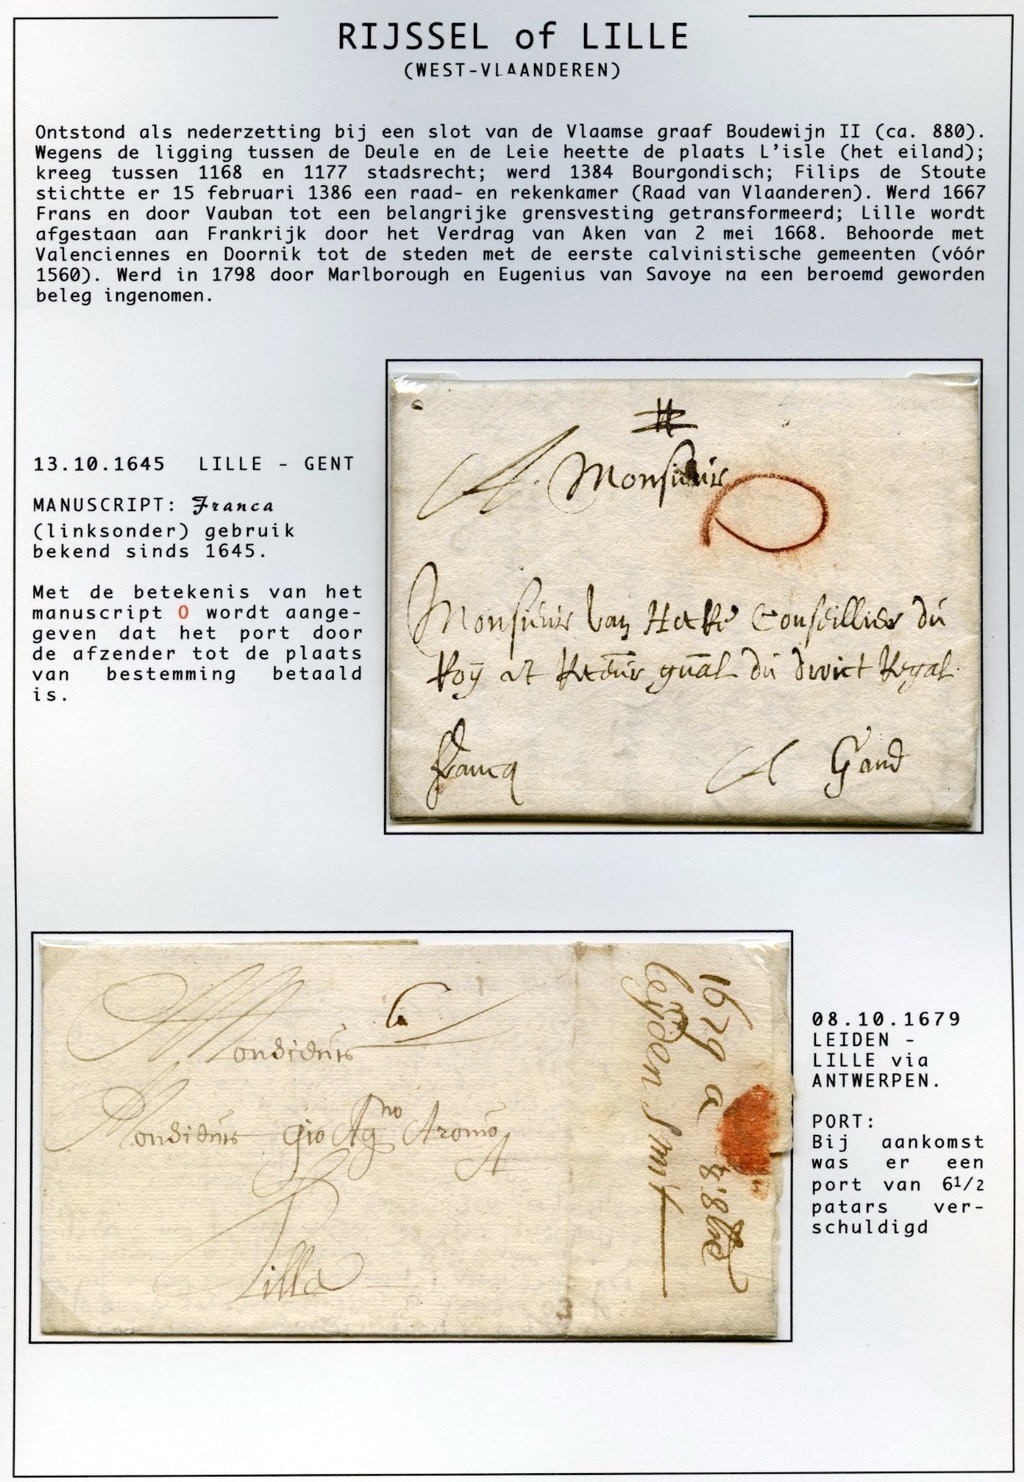 RIJSSEL of LILLE
(WEST-VLAANDEREN)
Ontstond als nederzetting bij een slot van de Vlaamse graaf Boudewijn II (ca. 880).
Wegens de ligging tussen de Deule en de Leie heette de plaats L'isle (het eiland);
kreeg tussen 1168 en 1177 stadsrecht; werd 1384 Bourgondisch; Filips de Stoute
stichtte er 15 februari 1386 een raad- en rekenkamer (Raad van Vlaanderen). Werd 1667
Frans en door Vauban tot een belangrijke grensvesting getransformeerd; Lille wordt
afgestaan aan Frankrijk door het Verdrag van Aken van 2 mei 1668. Behoorde met
Valenciennes en Doornik tot de steden met de eerste calvinistische gemeenten (vóór
1560). Werd in 1798 door Marlborough en Eugenius van Savoye na een beroemd geworden
beleg ingenomen.
13.10.1645 LILLE - GENT
MANUSCRIPT: Franca
(linksonder) gebruik
bekend sinds 1645.
Met de betekenis van het
manuscript O wordt aange-
geven dat het port door
de afzender tot de plaats
van bestemming betaald
is.
A Monsieur
Monsieur van Conseillier du
Roÿ et du droict Regal
Franca A Gand
08.10.1679
LEIDEN -
LILLE via
ANTWERPEN.
PORT:
Bij aankomst
was er een
port van 6 1/2
patars ver-
schuldigd
Monsieur
Monsieur gio
Lilla
1679 a
leyden Smit